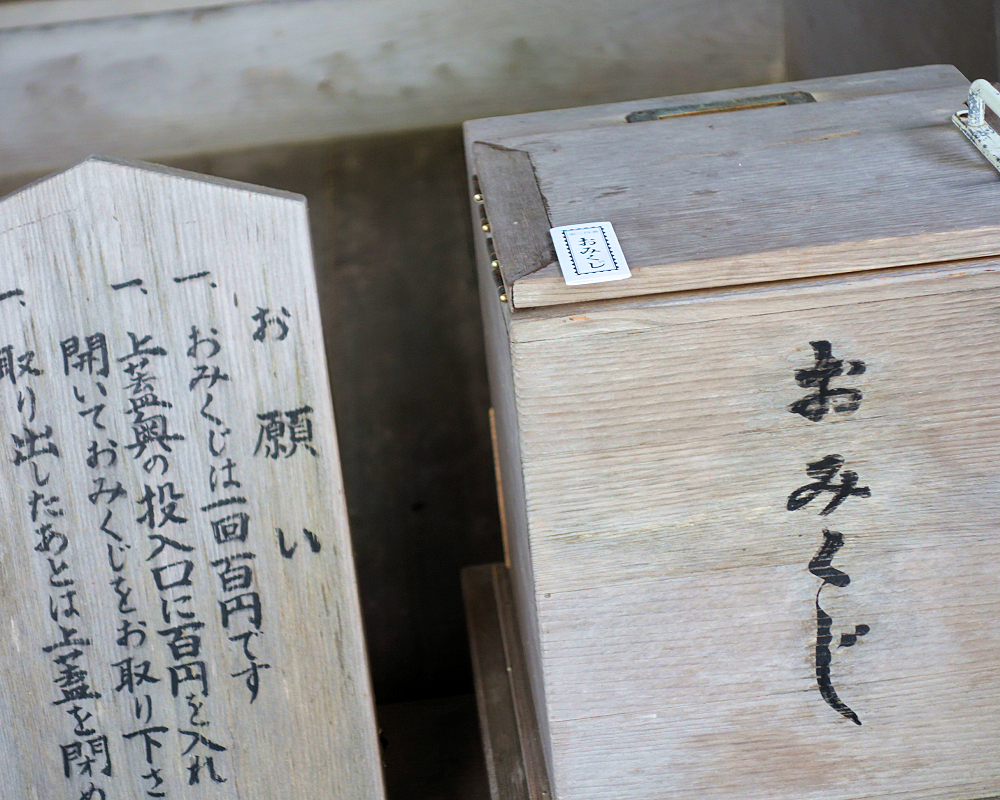 お願い
一、おみくじは一回百円です
一、上蓋奥の投入口に百円を入れ
開いておみくじをお取り下さ
一、取り出したあとは上蓋を閉め
おみくじ
おみくじ